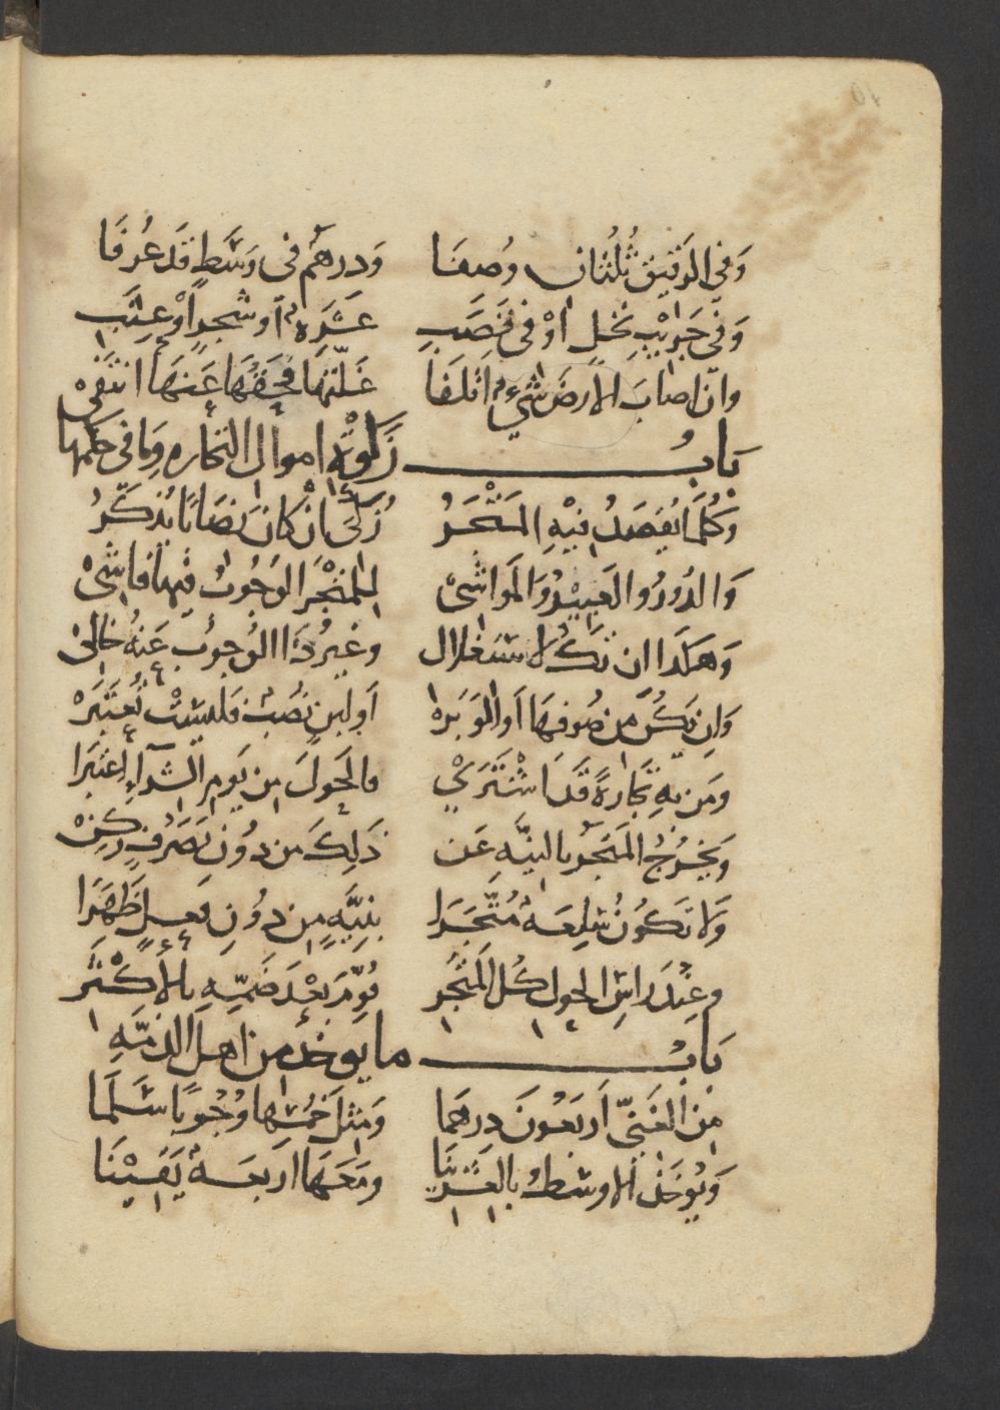 وَفِي الدَقِيقِ ثُلُثَانِ وُصِفَا وَدِرهَمٌ فى وَسَطٍ قَد عُرِفَا
وَفى جَرِيْبِ نَخلٍ اوْ فى قَصَبِ عَشَرَةٌ أو شَجرٍ أوْ عِنَبِ
وان اصَابَ الارضَ شىءٌ اتلَفَا غَلّتَهَا فَحَقُّهَا عَنهَا انتَفى
بَابُ زَكوٰةِ اموال التجاره وَمَا فى حكمها
وَكُلَّمَا يُقصَدُ فيْهِ المَتْجَرُ زُكىَ ان كانَ نصَابًا يُذكَرُ
وَالدُورُ والعَبِيْدُ وَالمَوَاشىْ للمَتْجَرِ الوُجُوبُ فيهَا فَاشىْ
وَهكَذا ان تَكُ لاستغلال وغيرُ ذَا الوجوُبِ عَنهُ خالىْ
وَان تَكُن من صُوفِهَا أو الوَبَره اَو لبنٍ نُصُبٌ فَليسَتْ تُعتَبَرَهْ
ومَن بهِ تجَارةً قَدَ اشْتَرَىْ فالحَولَ مِن يَومِ الشرآءِ اعتَبَرَا
وَيخرُجُ المَتجَرُ بالنيَّهِ عَن ذَلِكَ من دُوُنِ تَصَرُّفٍ زُكِنْ
وَلا تَكُونُ سِلعَةٌ مُتَّجَرَا بنِيَّهٍ مِن دُونِ فِعلٍ ظَهَرَا
وعِندَ راسِ الحول كُل المَتْجَرِ قُوّمَ بَعْدَ ضَمِّهِ بالأكْثَرِ
بَابُ ما يوخذ من اهل الذمّهِ
مِن الغَنِىّ اَربَعُونَ دِرهَما وَمثلَ خُمسِها وُجُوبًا سَلَمَا
وَيُوخَذ الاوسَطُ بالعشرينَا ومَعَهَا ارَبعَةٌ يَقيْنَا